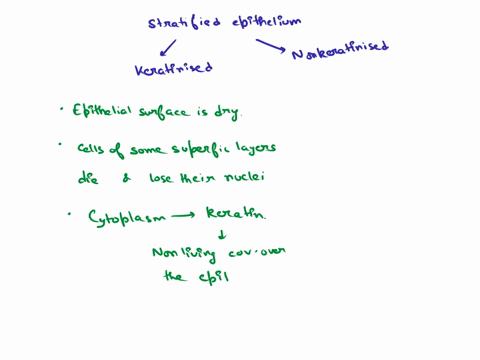 Stratified epithelium
Keratinised
Nonkeratinised
• Epithelial surface is dry.
• Cells of some superfic layers
die & lose their nuclei
• Cytoplasm → Keratin.
↓
Nonliving cov. over
the epil